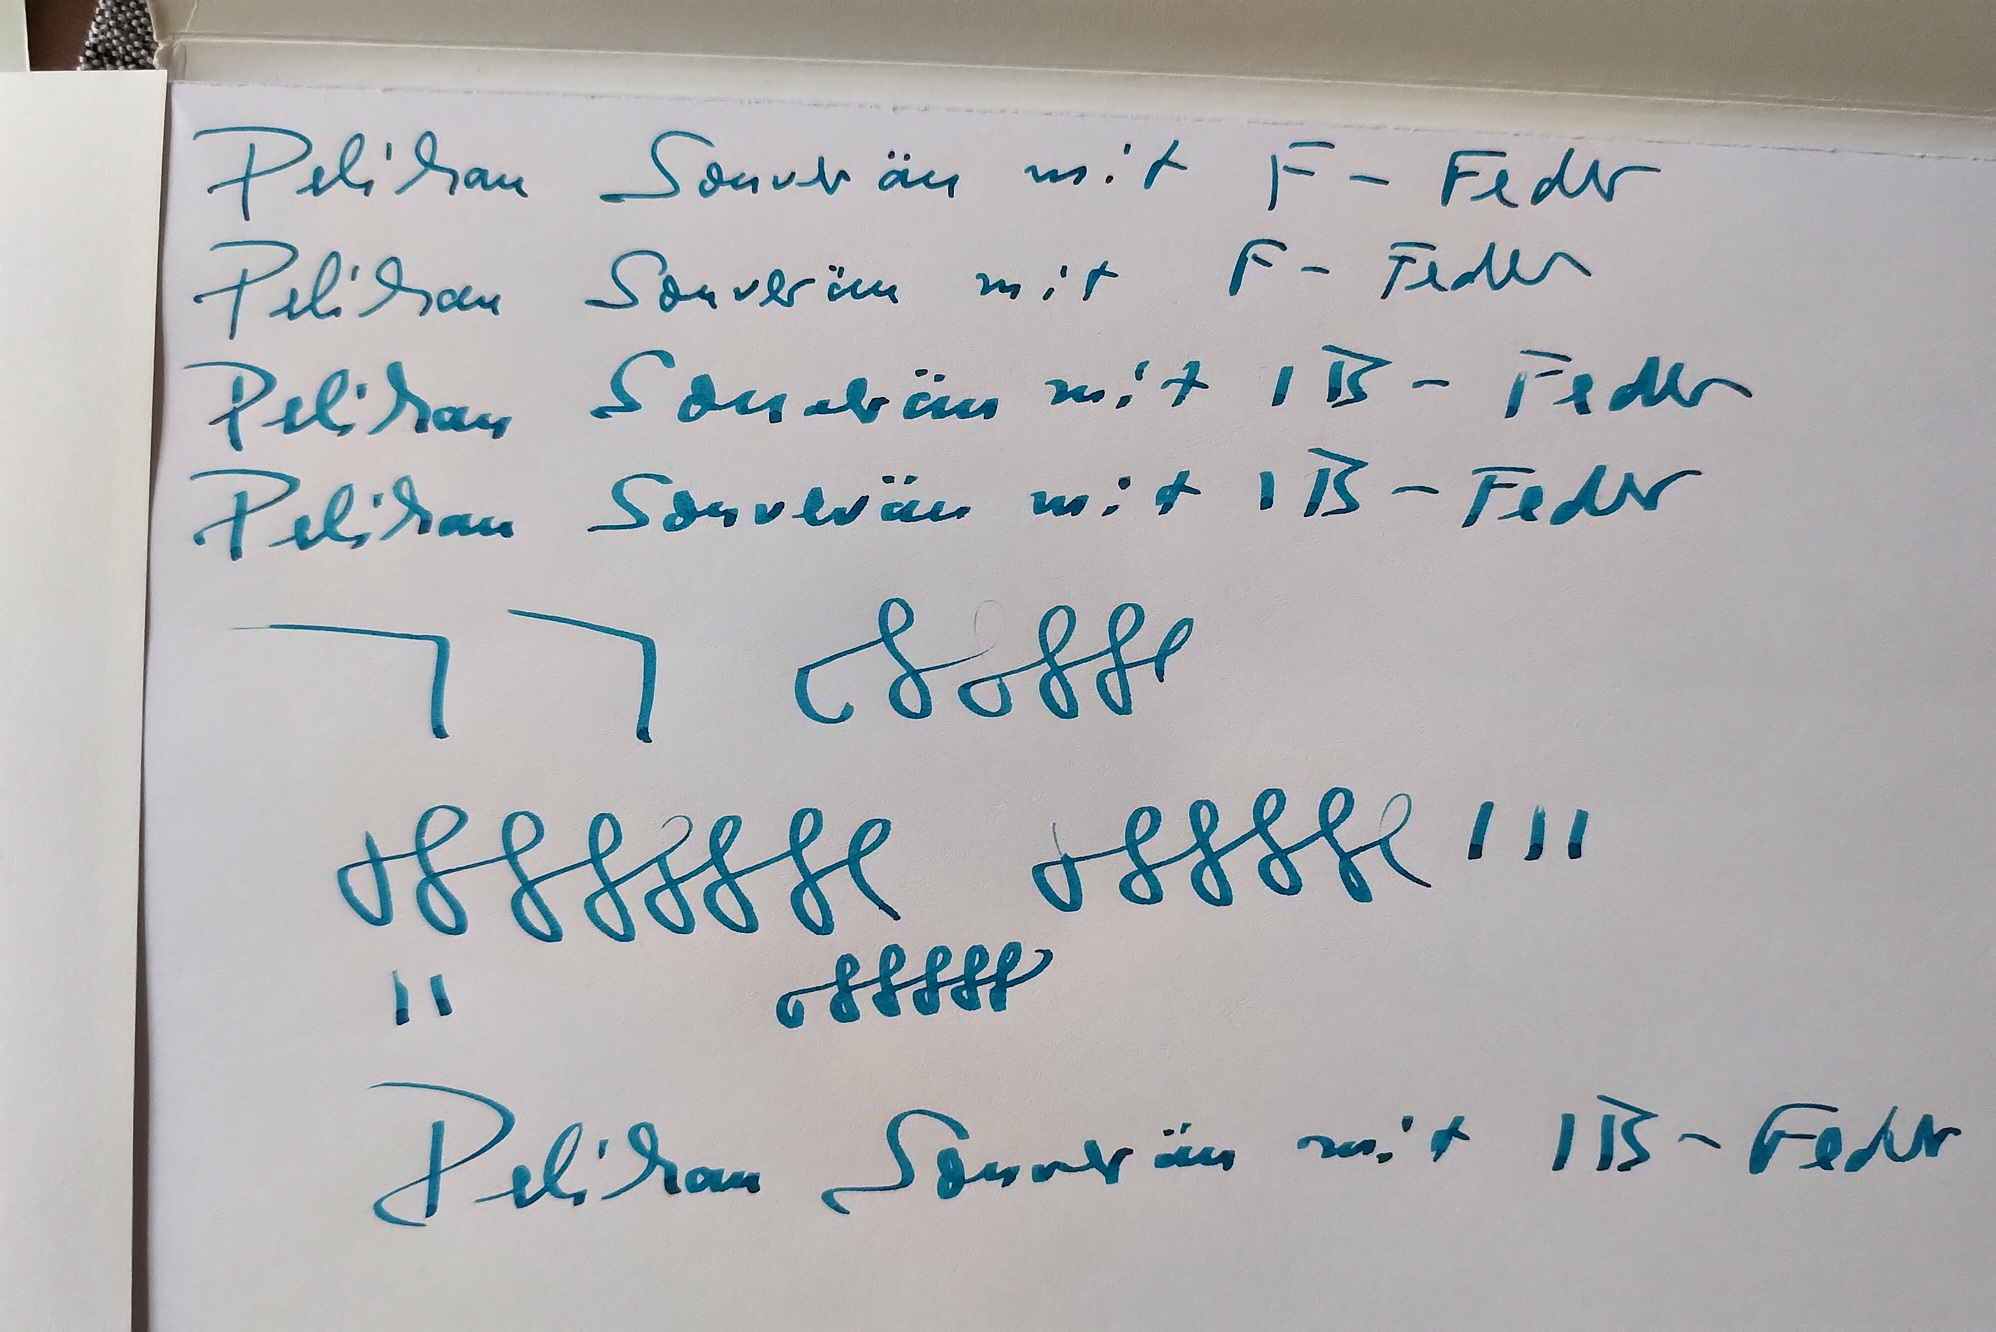 Pelikan Souverän mit F - Feder
Pelikan Souverän mit F - Feder
Pelikan Souverän mit IB - Feder
Pelikan Souverän mit IB - Feder
Pelikan Souverän mit IB - Feder